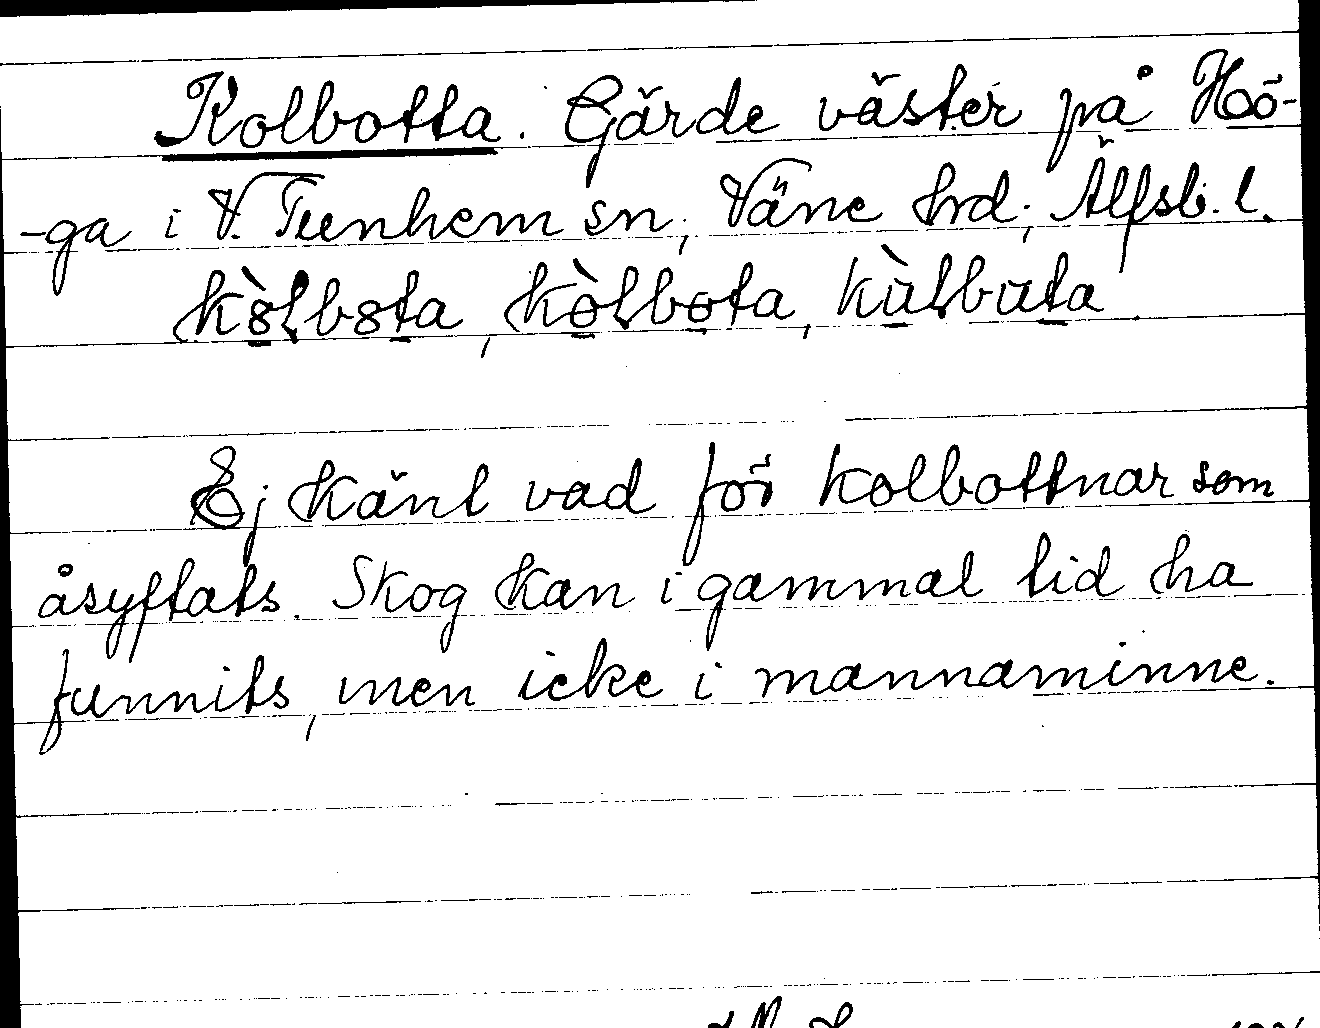 Kolbotta. Gärde väster på Hö-
-ga i V. Tunhem sn, Väne hrd, Älfsb. l.
kòlbota, kòlbota, kùlbuta.
Ej känt vad för kolbottnar som
åsyftats. Skog kan i gammal tid ha
funnits, men icke i mannaminne.